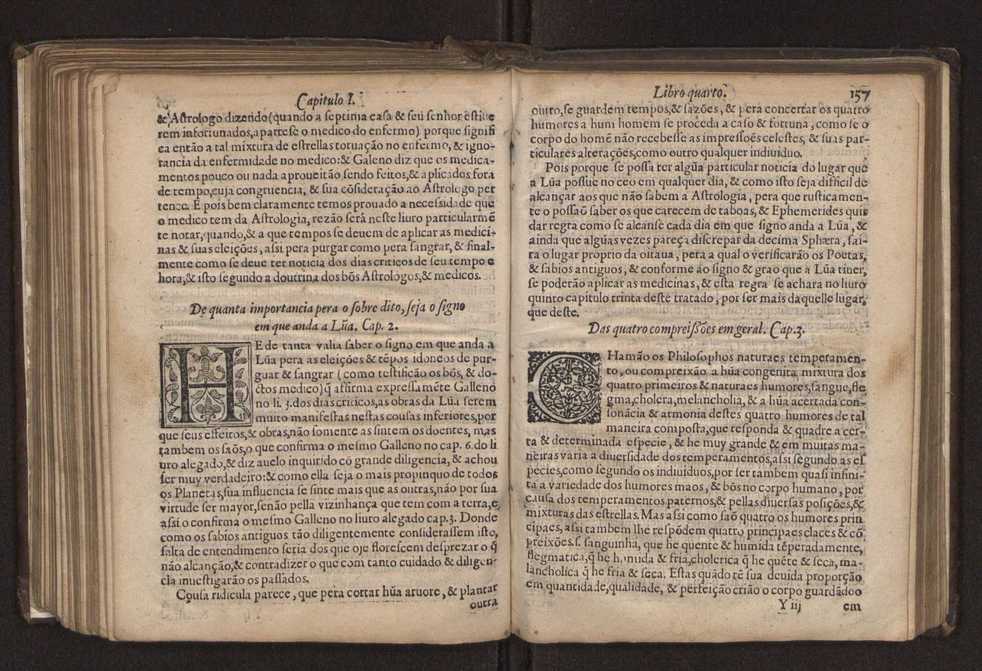 Capitulo I.
& Astrologo dizendo (quando a septima casa & seu senhor estiue
rem infortunados, aparte se o medico do enfermo) porque signifi
ca então a tal mixtura de estrellas toruação no enfermo, & igno-
rancia da enfermidade no medico: & Galeno diz que os medica-
mentos pouco ou nada aproueitão sendo feitos, & aplicados fora
de tempo, cuja congruencia, & sua cõsideração ao Astrologo per
tence. E pois bem claramente temos prouado a necessidade que
o medico tem da Astrologia, rezão serâ neste liuro particularmẽ
te notar, quando, & a que tempos se deuem de aplicar as medici-
nas & suas eleições, assi pera purgar como pera sangrar, & final-
mente como se deue ter noticia dos dias criticos de seu tempo e
hora, & isto segundo a doutrina dos bõs Astrologos, & medicos.
De quanta importancia pera o sobre dito, seja o signo
em que anda a Lũa. Cap. 2.
HE de tanta valia saber o signo em que anda a
Lũa pera as eleições & tẽpos idoneos de pur-
guar & sangrar (como testificão os bõs, & do-
ctos medico) q̃ affirma expressamẽte Galleno
no li. 3. dos dias criticos, as obras da Lũa serem
muito manifestas nestas cousas inferiores, por
que seus effeitos, & obras, não somente as sintem os doentes, mas
tambem os saõs, o que confirma o mesmo Galleno no cap. 6. do li
uro alegado, & diz auelo inquirido cõ grande diligencia, & achou
ser muy verdadeiro: & como ella seja o mais propinquo de todos
os Planetas, sua influencia se sinte mais que as outras, não por sua
virtude ser mayor, senão pella vizinhança que tem com a terra, e
assi o confirma o mesmo Galleno no liuro alegado cap. 3. Donde
como os sabios antiguos tão diligentemente considerassem isto,
falta de entendimento seria dos que oje florescem desprezar o q̃
não alcanção, & contradizer o que com tanto cuidado & diligen-
cia inuestigarão os passados.
Cousa ridicula parece, que pera cortar hũa aruore, & plantar
outra
Libro quarto. 157
outro, se guardem tempos, & sazões, & pera concertar os quatro
humores a hum homem se proceda a caso & fortuna, como se o
corpo do homẽ não recebesse as impressoẽs celestes, & suas par-
ticulares alterações, como outro qualquer indiuiduo.
Pois porque se possa ter algũa particular noticia do lugar que
a Lũa possue no ceo em qualquer dia, & como isto seja difficil de
alcançar aos que não sabem a Astrologia, pera que rusticamen-
te o possaõ saber os que carecem de taboas, & Ephemerides quis
dar regra como se alcanse cada dia em que signo anda a Lũa, &
ainda que algũas vezes pareça discrepar da decima Sphera, sai-
ra o lugar proprio da oitaua, pera a qual o verificarão os Poetas,
& sabios antiguos, & conforme ao signo & grao que a Lũa tiuer,
se poderão aplicar as medicinas, & esta regra se achara no liuro
quinto capitulo trinta deste tratado, por ser mais daquelle lugar,
que deste.
Das quatro compreissões em geral. Cap. 3.
CHamão os Philosophos naturaes temperamen-
to, ou compreixão a hũa congenita mixtura dos
quatro primeiros & naturaes humores, sangue, fle
gma, cholera, melancholia, & a hũa acertada con-
sonãcia & armonia destes quatro humores de tal
maneira composta, que responda & quadre a cer-
ta & determinada especie, & he muy grande & em muitas ma-
neiras varia a diuersidade dos temperamentos, assi segundo as es
pecies, como segundo os indiuiduos, por ser tambem quasi infini-
ta a variedade dos humores maos, & bõs no corpo humano, por
causa dos temperamentos paternos, & pellas diuersas posições, &
mixturas das estrellas. Mas assi como saõ quatro os humores prin
cipaes, assi tambem lhe respõdem quatro principaes claces & cõ
preixões. s. sanguinha, que he quente & humida tẽperadamente,
flegmatica, q̃ he humida & fria, cholerica q̃ he quẽte & seca, ma-
lancholica q̃ he fria & seca. Estas quãdo tẽ sua deuida proporção
em quantidade, qualidade, & perfeição crião o corpo guardãdo o
Y iij em